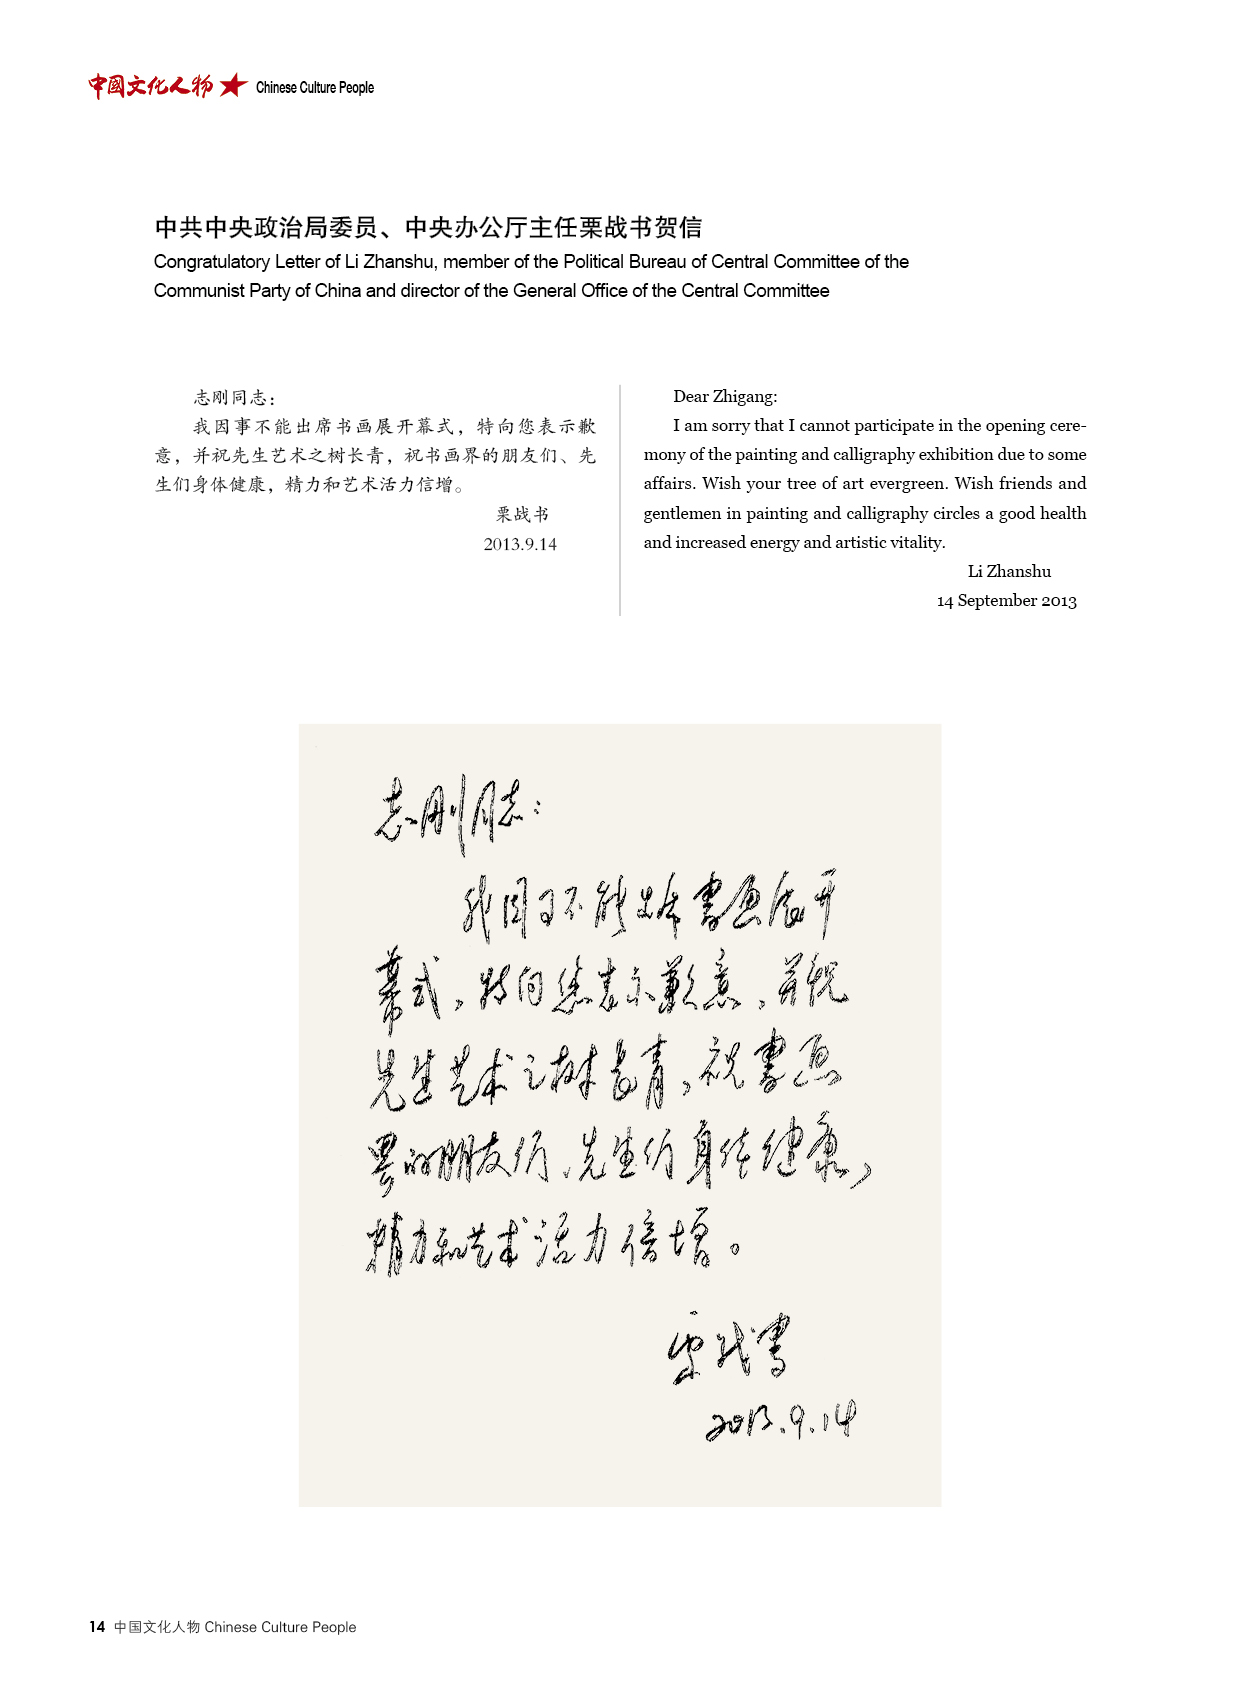 中國文化人物 Chinese Culture People
中共中央政治局委员、中央办公厅主任栗战书贺信
Congratulatory Letter of Li Zhanshu, member of the Political Bureau of Central Committee of the
Communist Party of China and director of the General Office of the Central Committee
志刚同志：
我因事不能出席书画展开幕式，特向您表示歉
意，并祝先生艺术之树长青，祝书画界的朋友们、先
生们身体健康，精力和艺术活力信增。
栗战书
2013.9.14
Dear Zhigang:
I am sorry that I cannot participate in the opening cere-
mony of the painting and calligraphy exhibition due to some
affairs. Wish your tree of art evergreen. Wish friends and
gentlemen in painting and calligraphy circles a good health
and increased energy and artistic vitality.
Li Zhanshu
14 September 2013
志刚同志：
我因事不能出席書画展开
幕式，特向您表示歉意，并祝
先生艺术之树长青，祝書画
界的朋友们、先生们身体健康，
精力和艺术活力倍增。
栗战書
2013.9.14
14 中国文化人物 Chinese Culture People